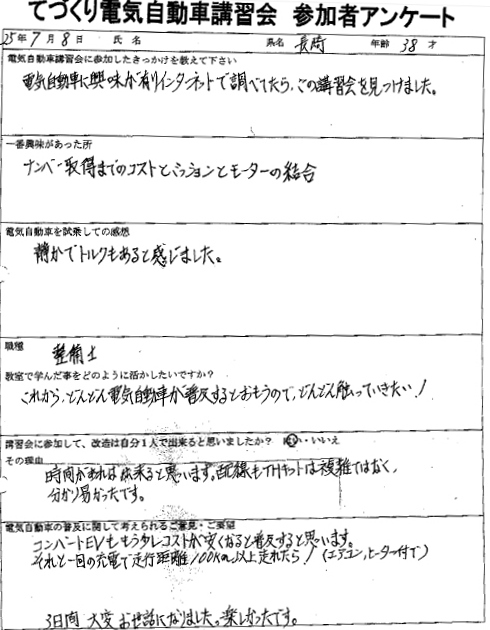 てづくり電気自動車講習会 参加者アンケート
25年7月8日 氏名 県名 長崎 年齢 38才
電気自動車講習会に参加したきっかけを教えて下さい
電気自動車に興味が有りインターネットで調べてたら、この講習会を見つけました。
一番興味があった所
ナンバー取得までのコストとミッションとモーターの結合
電気自動車を試乗しての感想
静かでトルクもあると感じました。
職種 整備士
教室で学んだ事をどのように活かしたいですか?
これから、どんどん電気自動車が普及するとおもうので、どんどん触っていきたい!
講習会に参加して、改造は自分1人で出来ると思いましたか? はい・いいえ
その理由
時間があれば出来ると思います。配線もTHキットは複雑ではなく、
分かり易かったです。
電気自動車の普及に関して考えられるご意見・ご要望
コンバートEVももう少しコストが安くなると普及すると思います。
それと一回の充電で走行距離100Km以上走れたら!(エアコン,ヒーター付で)
3日間 大変お世話になりました。楽しかったです。